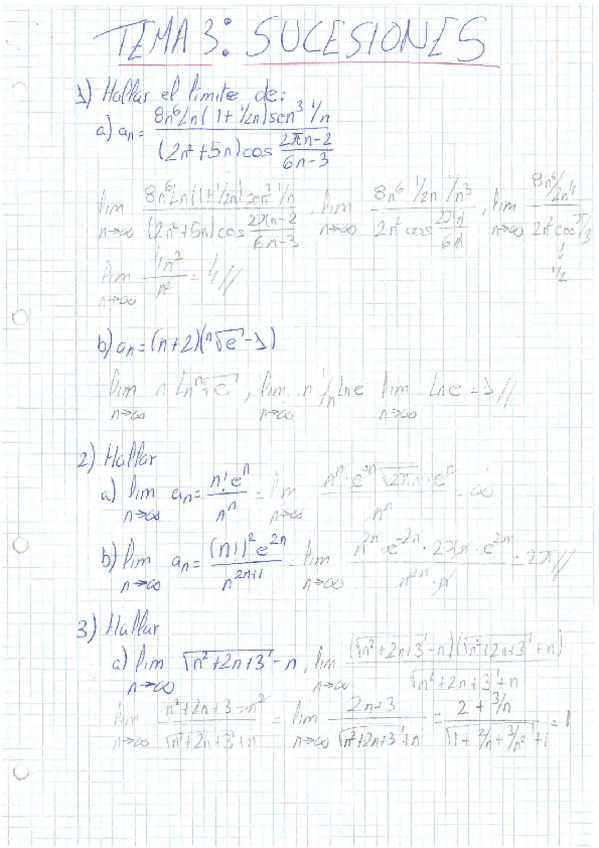 TEMA 3: SUCESIONES
1) Hallar el límite de:
a) an = 8n⁶ Ln(1+1/2n) sen³ 1/n / (2n²+5n) cos (2πn-2 / 6n-3)
lim n→∞ 8n⁶ Ln(1+1/2n) sen³ 1/n / (2n²+5n) cos (2πn-2 / 6n-3) , lim n→∞ 8n⁶ 1/2n 1/n³ / 2n² cos (2πn / 6n) , lim n→∞ 8n⁶/2n⁴ / 2n² cos π/3
↓
1/2
lim n→∞ 4n² / n² = 4//
b) an = (n+2)(ⁿ√e - 1)
lim n→∞ n Ln ⁿ√e , lim n→∞ n 1/n Ln e lim n→∞ Ln e = 1//
2) Hallar
a) lim n→∞ an = n! eⁿ / nⁿ = lim n→∞ nⁿ · e⁻ⁿ √2πn · eⁿ / nⁿ = ∞
b) lim n→∞ an = (n!)² e²ⁿ / n²ⁿ⁺¹ = lim n→∞ n²ⁿ · e⁻²ⁿ · 2πn · e²ⁿ / n²ⁿ · n = 2π//
3) Hallar
a) lim n→∞ √n²+2n+3 - n , lim n→∞ (√n²+2n+3 - n)(√n²+2n+3 + n) / √n²+2n+3 + n
lim n→∞ n²+2n+3-n² / √n²+2n+3 + n = lim n→∞ 2n+3 / √n²+2n+3 + n = 2 + 3/n / √1+2/n+3/n² + 1 = 1